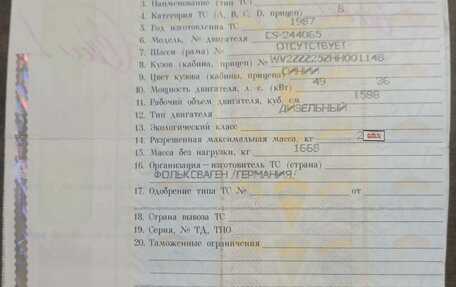 3. Наименование (тип ТС)
4. Категория ТС (A, B, C, D, прицеп) B
5. Год изготовления ТС 1987
6. Модель, № двигателя CS-244065
7. Шасси (рама) № ОТСУТСТВУЕТ
8. Кузов (кабина, прицеп) № WV2ZZZ25ZHH001148
9. Цвет кузова (кабины, прицепа) СИНИЙ
10. Мощность двигателя, л. с. (кВт) 49 36
11. Рабочий объем двигателя, куб. см 1588
12. Тип двигателя ДИЗЕЛЬНЫЙ
13. Экологический класс
14. Разрешенная максимальная масса, кг 2
15. Масса без нагрузки, кг 1668
16. Организация—изготовитель ТС (страна)
ФОЛЬКСВАГЕН /ГЕРМАНИЯ/
17. Одобрение типа ТС № от
18. Страна вывоза ТС
19. Серия, № ТД, ТПО
20. Таможенные ограничения